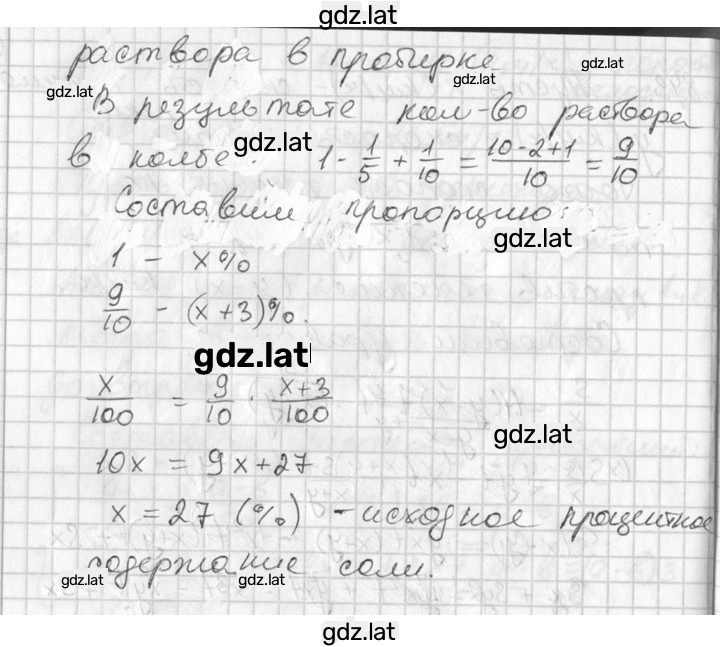 gdz.lat
раствора в пробирке
gdz.lat
gdz.lat
gdz.lat
В результате кол-во раствора
в колбе: 1 - 1/5 + 1/10 = (10-2+1)/10 = 9/10
gdz.lat
Составим пропорцию:
gdz.lat
1 - x%
9/10 - (x+3)%.
gdz.lat
x/100 = 9/10 · (x+3)/100
gdz.lat
10x = 9x+27
x = 27 (%) - исходное процентное
содержание соли.
gdz.lat
gdz.lat
gdz.lat
gdz.lat